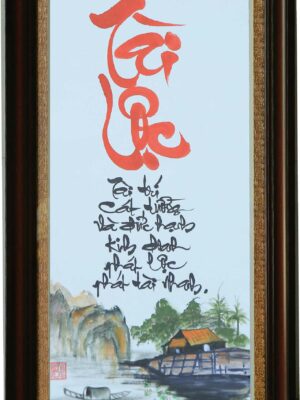 Tài
Lộc
Tài trí
Cát tường
và đức hạnh
Kinh doanh
phát lộc
phát tài nhanh.